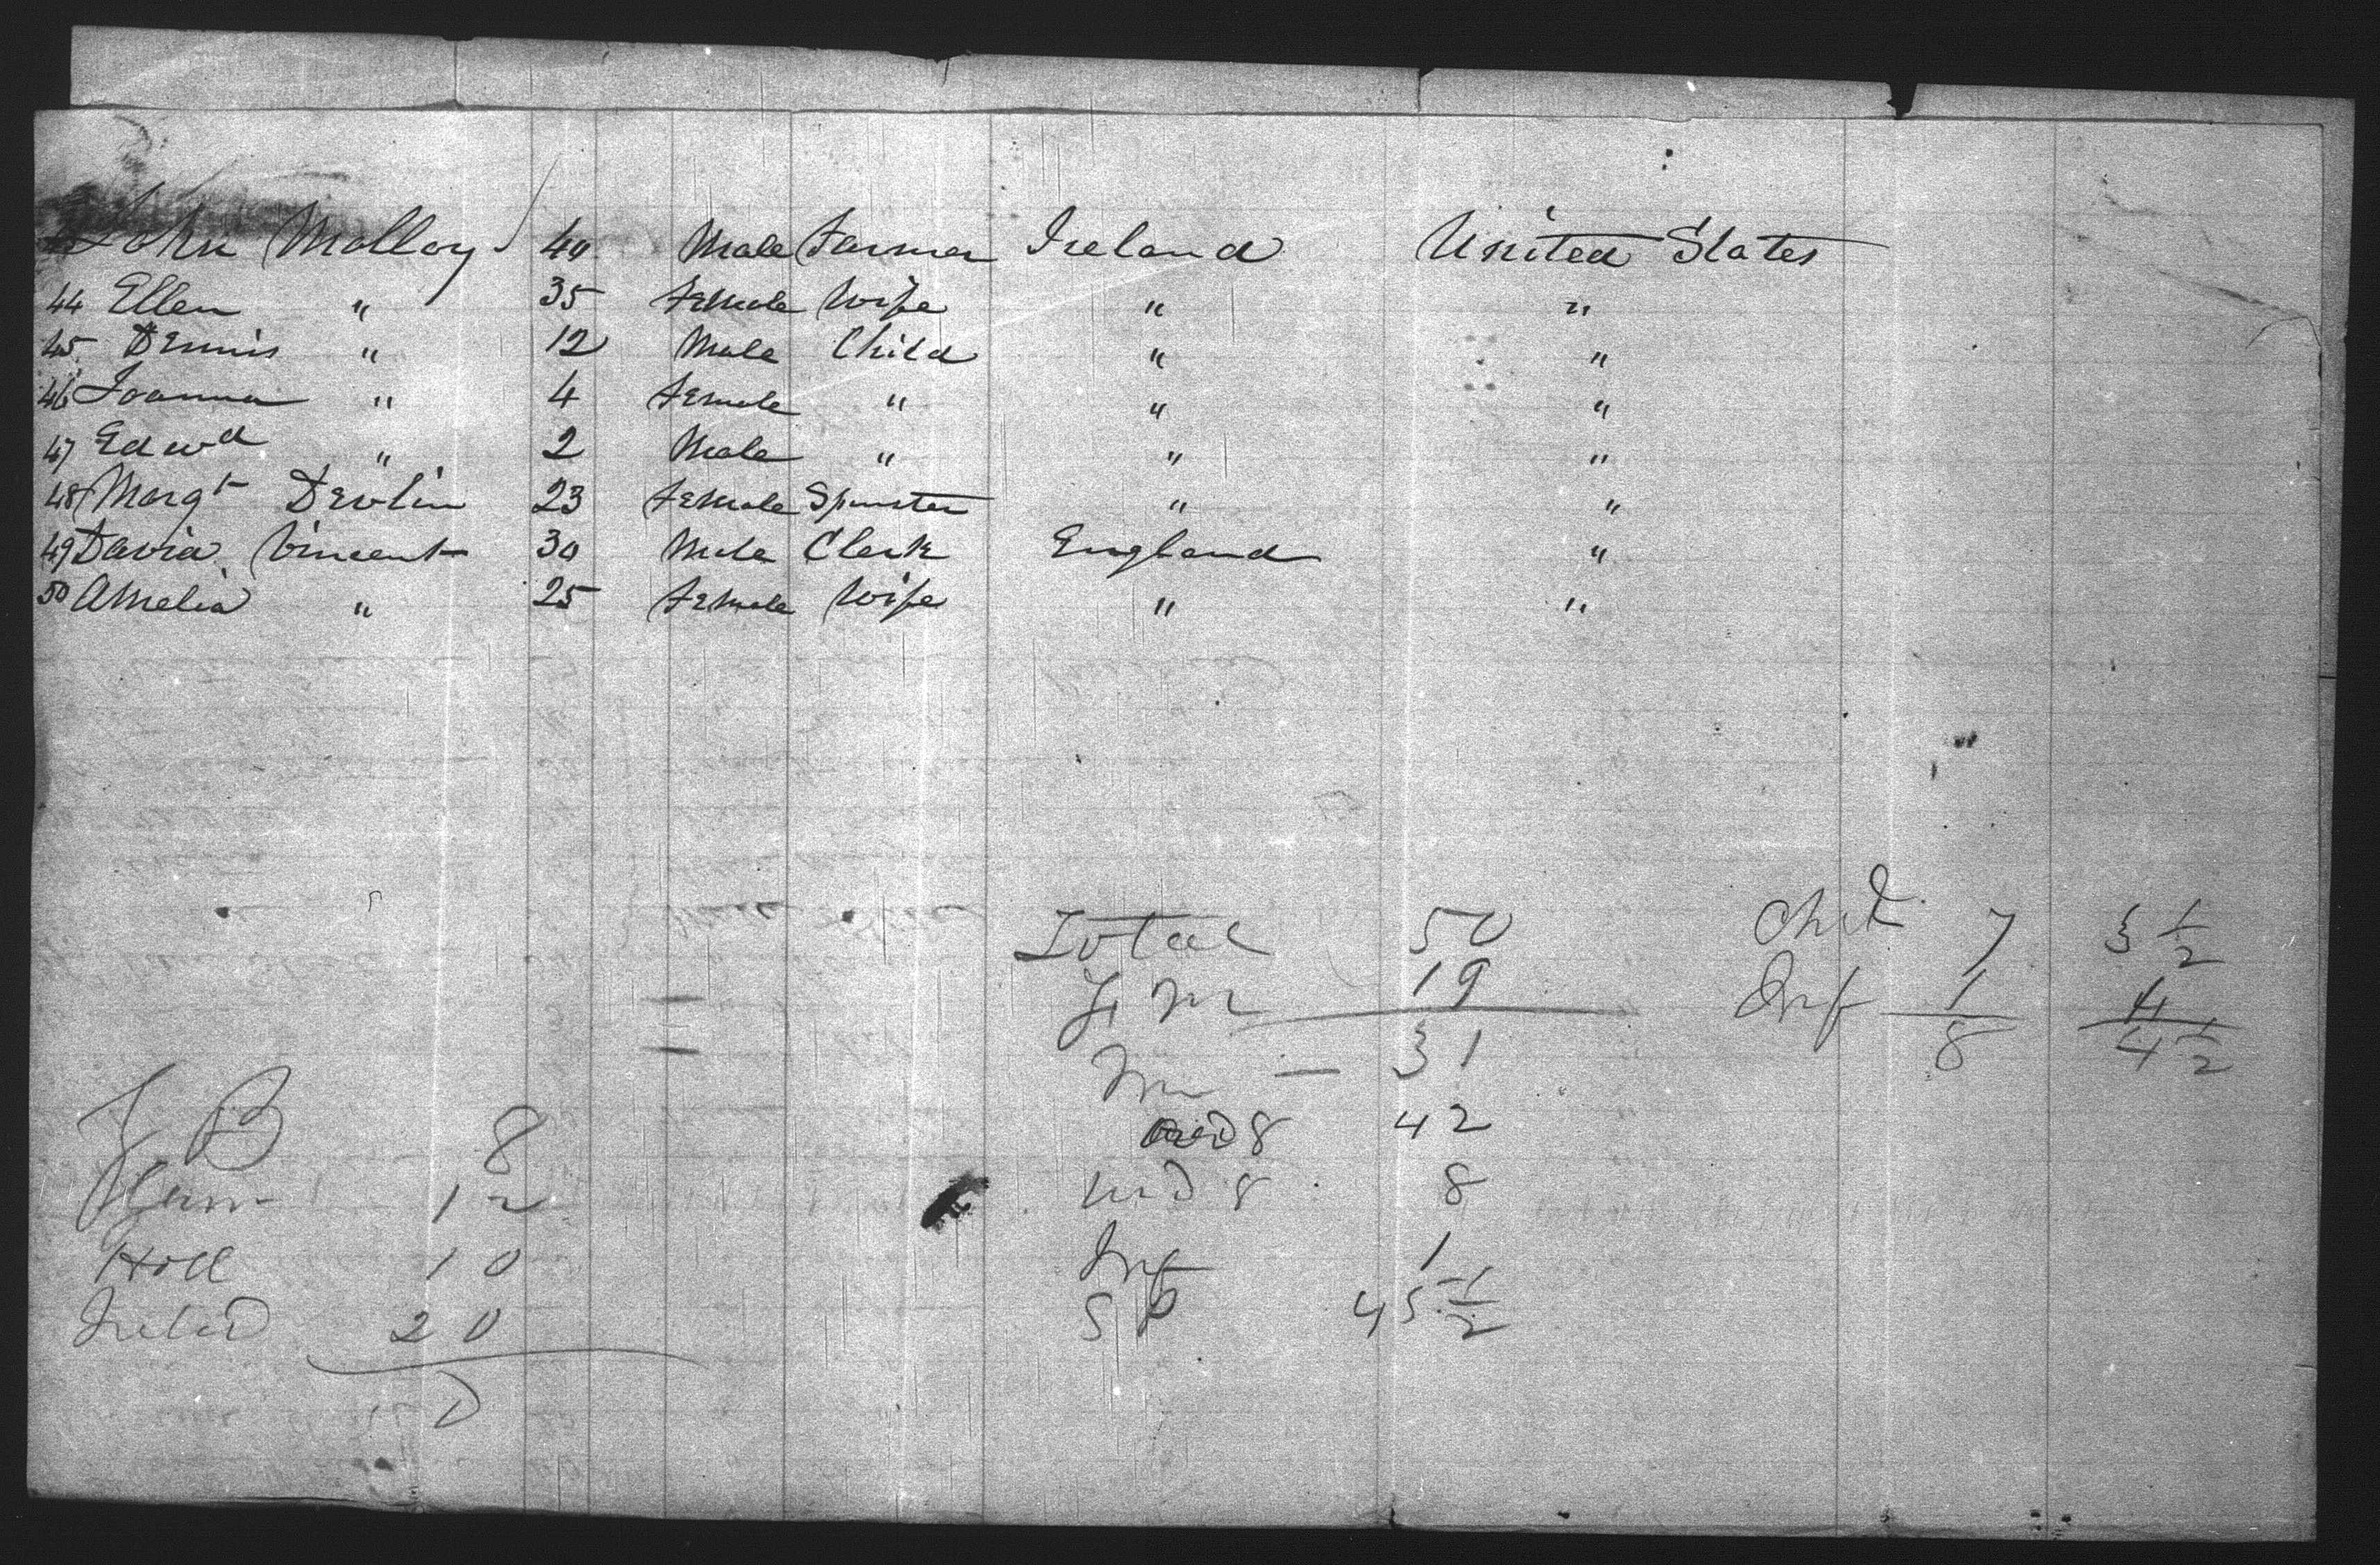 John Molloy 40 Male Farmer Ireland United States
44 Ellen " 35 Female Wife " "
45 Dennis " 12 Male Child " "
46 Joanna " 4 Female " " "
47 Edwd " 2 Male " " "
48 Margt Devlin 23 Female Spinster " "
49 David Vincent 30 Male Clerk England "
50 Amelia " 25 Female Wife " "
Total 50
F M 19
M — 31
ovd 8 42
und 8 8
Inf 1
S P 45 1/2
Chd 7 3 1/2
Inf 1
8 4 1/2
G B 8
Germ 12
Holl 10
Irelnd 20